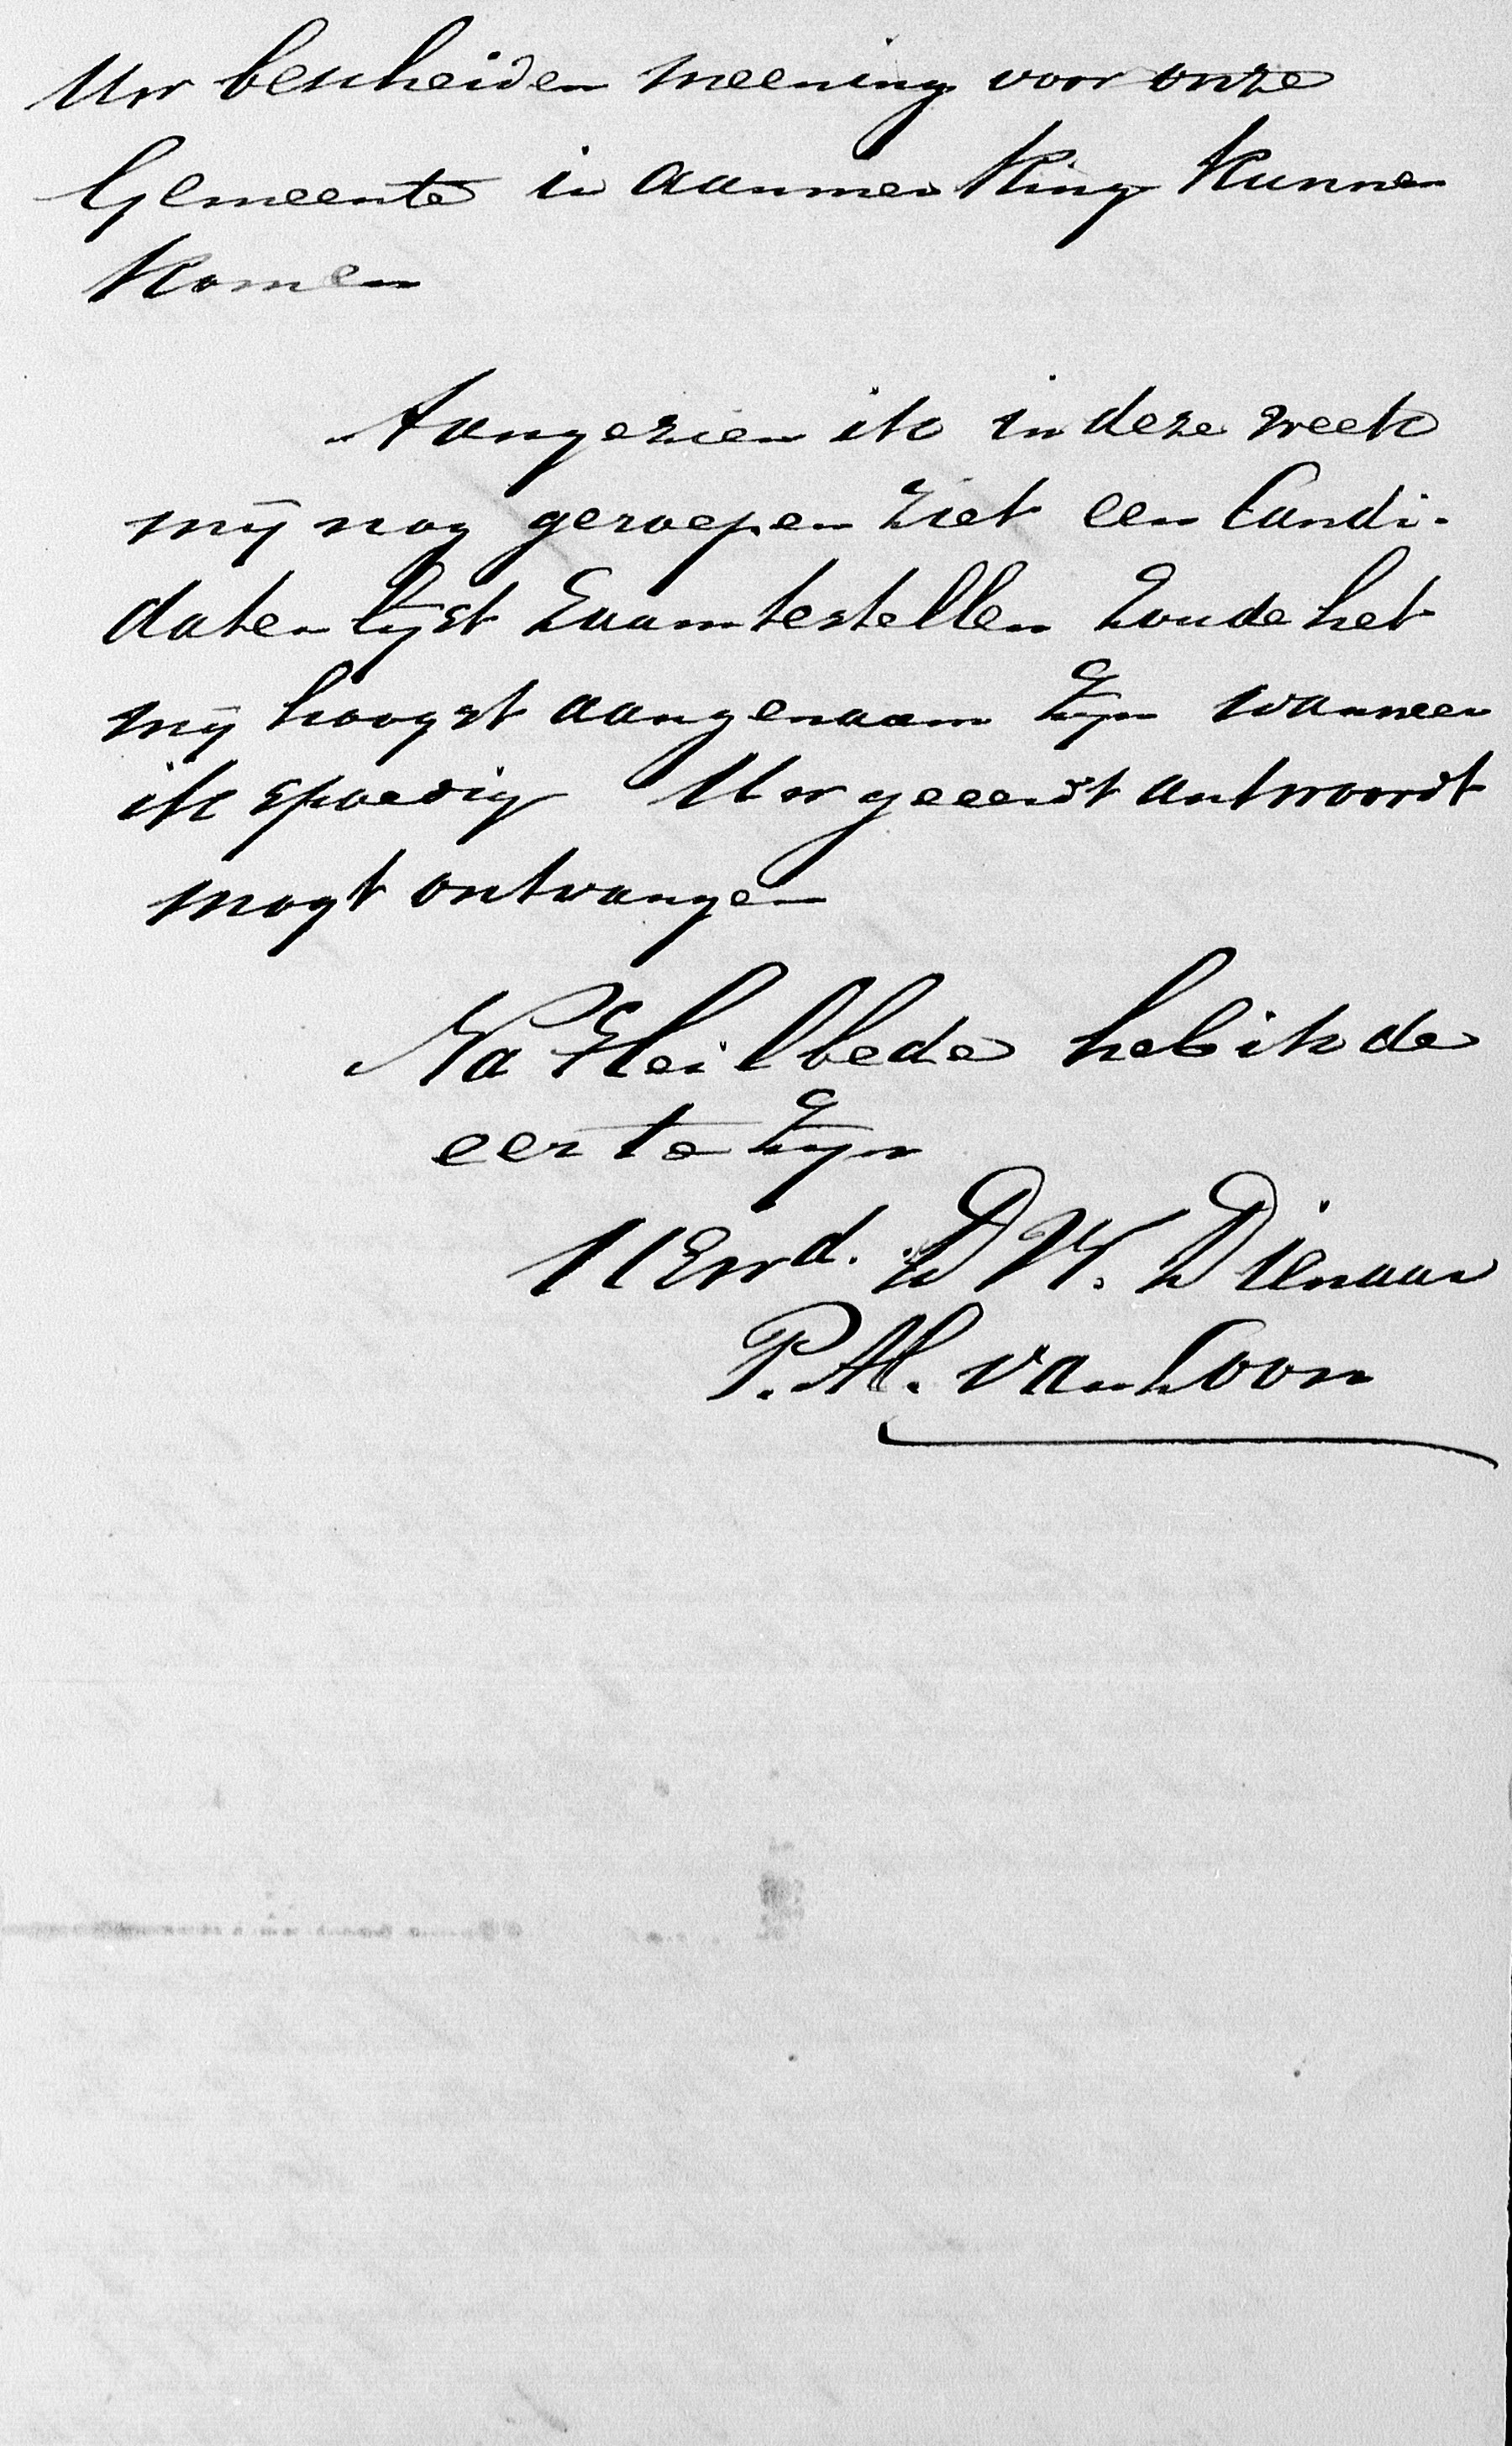 Uw bescheiden meening voor onze
Gemeente in aanmerking kunnen
komen
Aangezien ik in deze week
mij nog geroepen ziet een Candi-
daten lijst zaamtestellen zoude het
mij hoogst aangenaam zijn wanneer
ik spoedig Uw geeerdt antwoordt
mogt ontvangen
Na Heilbede heb ik de
eer te zijn
UEwd. D W. Dienaar
P. M. van Loon